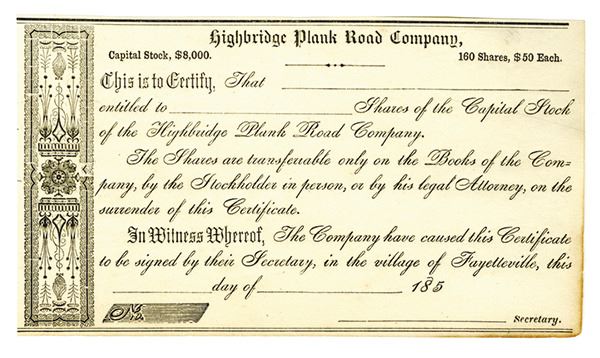 Highbridge Plank Road Company,
Capital Stock, $8,000. 160 Shares, $50 Each.
This is to Certify, That
entitled to Shares of the Capital Stock
of the Highbridge Plank Road Company.
The Shares are transferrable only on the Books of the Com=
pany, by the Stockholder in person, or by his legal Attorney, on the
surrender of this Certificate.
In Witness Whereof, The Company have caused this Certificate
to be signed by their Secretary, in the village of Fayetteville, this
day of 185
No. Secretary.